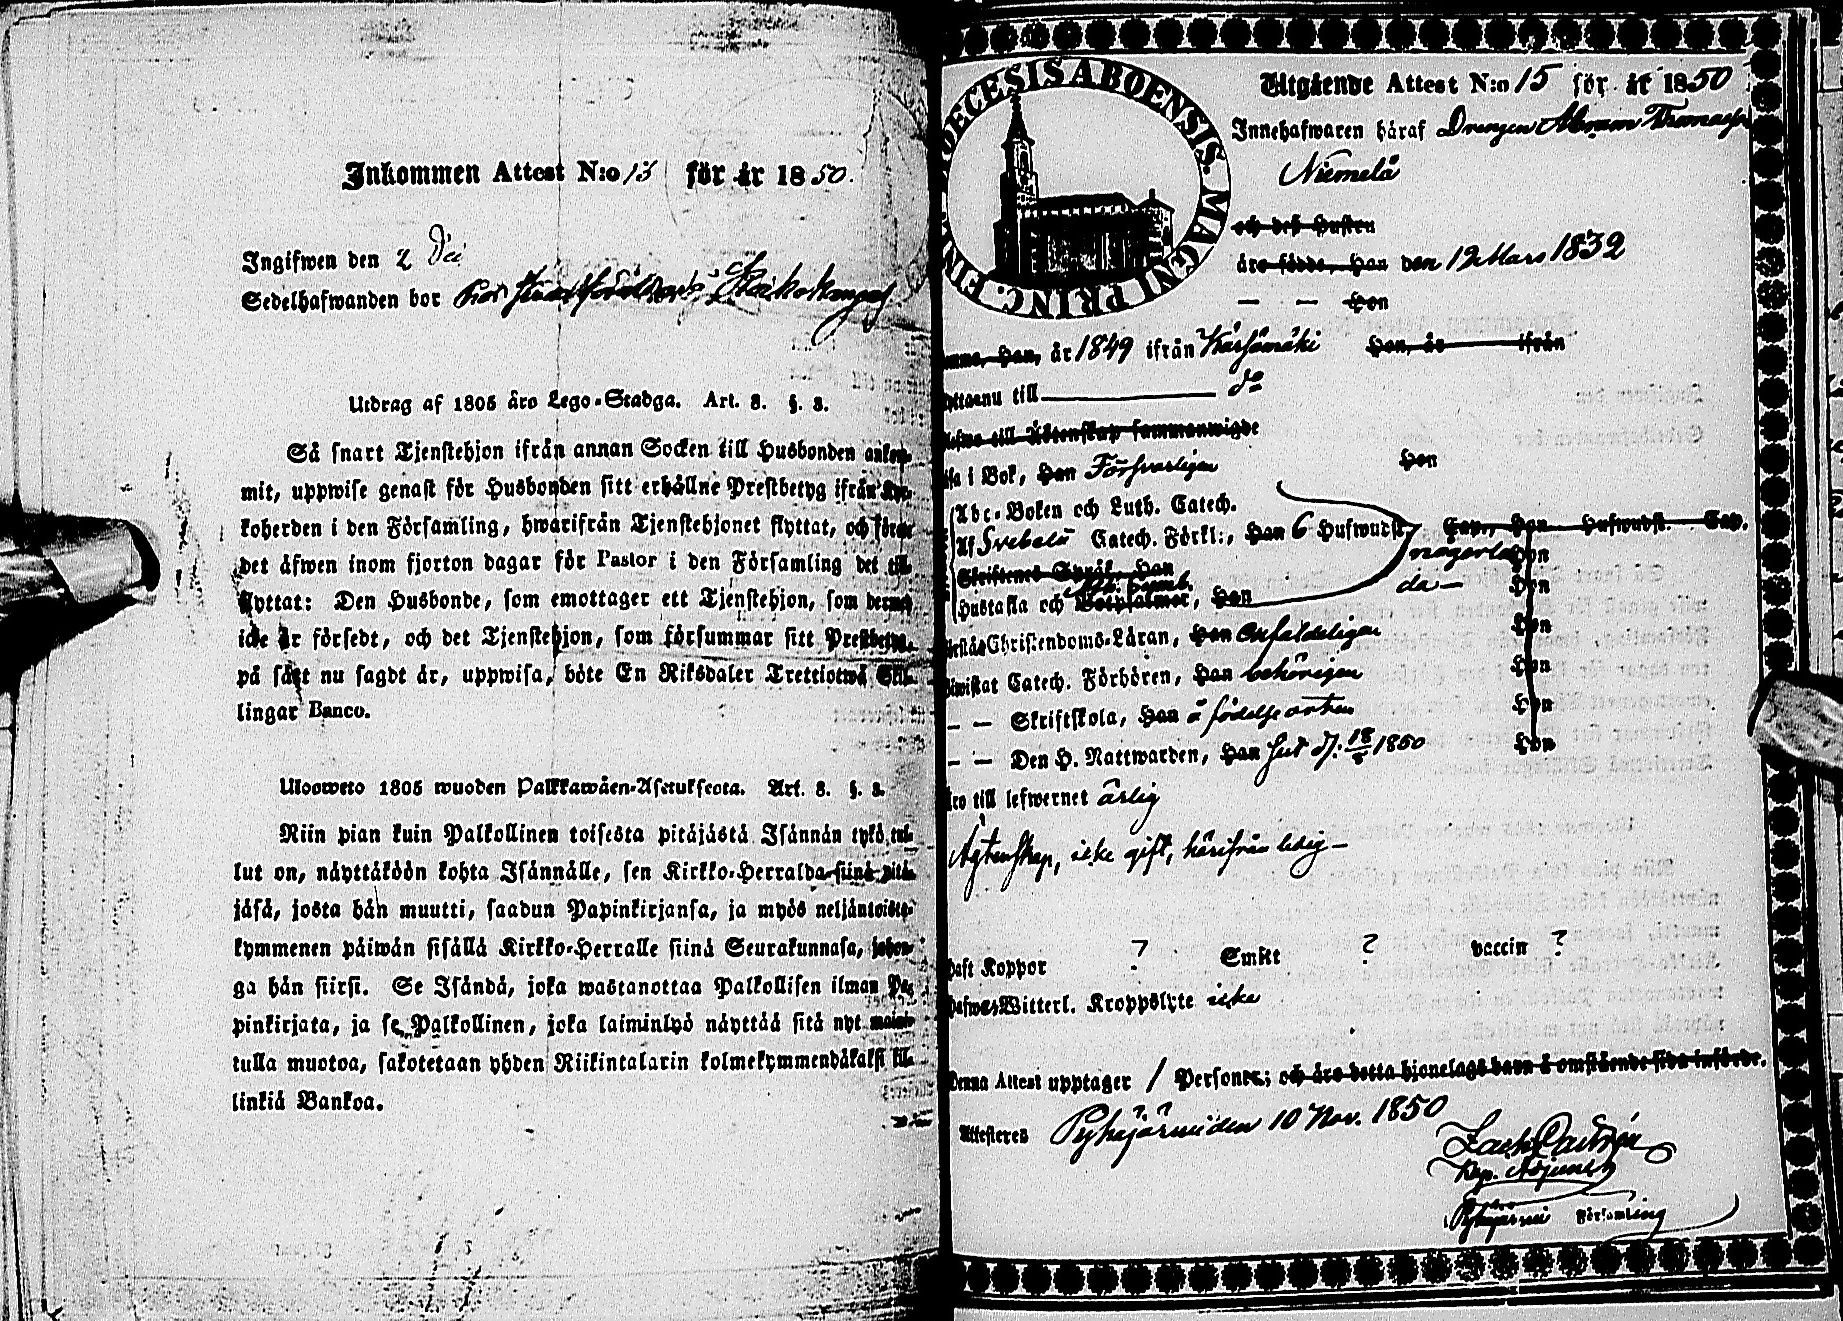 Inkommen Attest N:o 15 för år 1850.
Ingifwen den 2
Sedelhafwanden bor
Utdrag af 1805 års Lego-Stadga. Art. 8. §. 3.
Så snart Tjenstehjon ifrån annan Socken till Husbonden ankom-
mit, uppwise genast för Husbonden sitt erhållne Prestbetyg ifrån Kyr-
koherden i den Församling, hwarifrån Tjenstehjonet flyttat, och förete
det äfwen inom fjorton dagar för Pastor i den Församling det till-
flyttat: Den Husbonde, som emottager ett Tjenstehjon, som dermed
icke är försedt, och det Tjenstehjon, som försummar sitt Prestbetyg,
på sätt nu sagdt är, uppwisa, böte En Riksdaler Trettiotwå Skil-
lingar Banco.
Ulosweto 1805 wuoden Palkkawäen-Asetuksesta. Art. 8. §. 3.
Niin pian kuin Palkollinen toisesta pitäjästä Isännän tykö tul-
lut on, näyttäköön kohta Isännälle, sen Kirkko-Herralda siinä pitä-
jäsä, josta hän muutti, saadun Papinkirjansa, ja myös neljäntoista-
kymmenen päiwän sisällä Kirkko-Herralle siinä Seurakunnasa, johon-
ga hän siirsi. Se Isändä, joka wastanottaa Palkollisen ilman Pa-
pinkirjata, ja se Palkollinen, joka laiminlyö näyttää sitä nyt maini-
tulla muotoa, sakotetaan yhden Riikintalarin kolmekymmendäkaksi kil-
linkiä Bankoa.
DIOECESIS ABOENSIS. MAGNI PRINC. FINL.
Utgående Attest N:o 15 för år 1850
Innehafwaren häraf Drengen Abram Thomasson
Niemelä
och deß Hustru
äro födde, Han den 12 Mars 1832
— — Hon
Han, år 1849 ifrån Kärsämäki Hon, år ifrån
till do
till Äktenskap sammanwigde
i Bok, Han Försvarligen Hon
Abc-Boken och Luth. Catech.
Af Svebelii Catech. Förkl:, Han 6 Hufwudst. Cap., Hon Hufwudst. Cap.
Skriftenes Språk, Han någorlunda Hon
Hustafla och Botpsalmer, Han do — Hon
Christendoms-Läran, Han enfaldeligen Hon
Catech. Förhören, Han behörigen Hon
— — Skriftskola, Han å födelse orten Hon
— — Den H. Nattwarden, Han 18 1850 Hon
till lefwernet ärlig
Ägtenskap, icke gift, härifrån ledig —
Haft Koppor ? Smitt ? vaccin ?
Witterl. Kroppslyte icke
Denna Attest upptager 1 Personer; och äro detta hjonelags barn å omstående sida införde.
Attesteres Pyhäjärvi den 10 Nov. 1850
Pyhäjärvi Församling